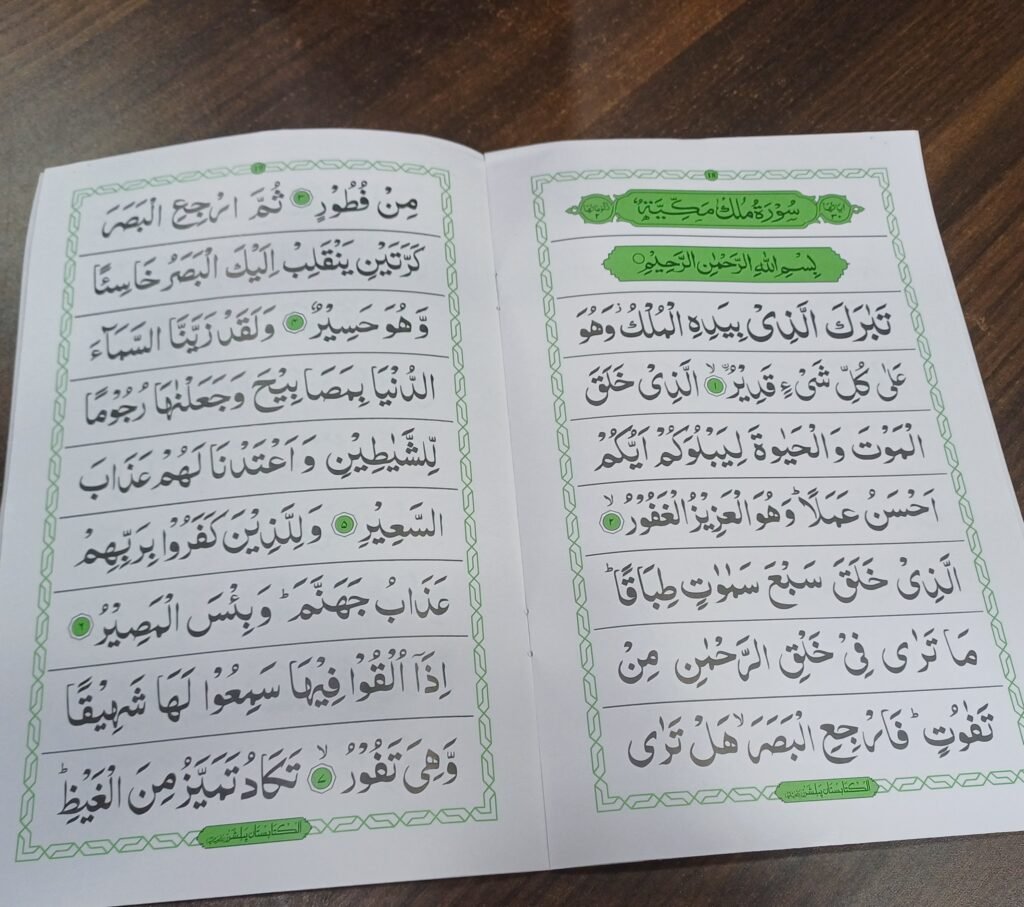 ١٨
سُوْرَةُ مُلْكٍ مَكِّيَّةٌ
بِسْمِ اللهِ الرَّحْمٰنِ الرَّحِيْمِ
تَبٰرَكَ الَّذِىْ بِيَدِهِ الْمُلْكُ ۡ وَهُوَ
عَلٰى كُلِّ شَىْءٍ قَدِيْرُ ۙ ﴿١﴾ الَّذِىْ خَلَقَ
الْمَوْتَ وَالْحَيٰوةَ لِيَبْلُوَكُمْ اَيُّكُمْ
اَحْسَنُ عَمَلًا ؕ وَهُوَ الْعَزِيْزُ الْغَفُوْرُ ۙ ﴿٢﴾
الَّذِىْ خَلَقَ سَبْعَ سَمٰوٰتٍ طِبَاقًا ؕ
مَا تَرٰى فِىْ خَلْقِ الرَّحْمٰنِ مِنْ
تَفٰوُتٍ ؕ فَارْجِعِ الْبَصَرَ ۙ هَلْ تَرٰى
الكتابستان پبلشرز
مِنْ فُطُوْرٍ ﴿٣﴾ ثُمَّ ارْجِعِ الْبَصَرَ
كَرَّتَيْنِ يَنْقَلِبْ اِلَيْكَ الْبَصَرُ خَاسِئًا
وَّهُوَ حَسِيْرٌ ﴿٤﴾ وَلَقَدْ زَيَّنَّا السَّمَآءَ
الدُّنْيَا بِمَصَابِيْحَ وَجَعَلْنٰهَا رُجُوْمًا
لِّلشَّيٰطِيْنِ وَاَعْتَدْنَا لَهُمْ عَذَابَ
السَّعِيْرِ ﴿٥﴾ وَلِلَّذِيْنَ كَفَرُوْا بِرَبِّهِمْ
عَذَابُ جَهَنَّمَ ؕ وَبِئْسَ الْمَصِيْرُ ﴿٦﴾
اِذَآ اُلْقُوْا فِيْهَا سَمِعُوْا لَهَا شَهِيْقًا
وَّهِىَ تَفُوْرُ ۙ ﴿٧﴾ تَكَادُ تَمَيَّزُ مِنَ الْغَيْظِ ؕ
الكتابستان پبلشرز